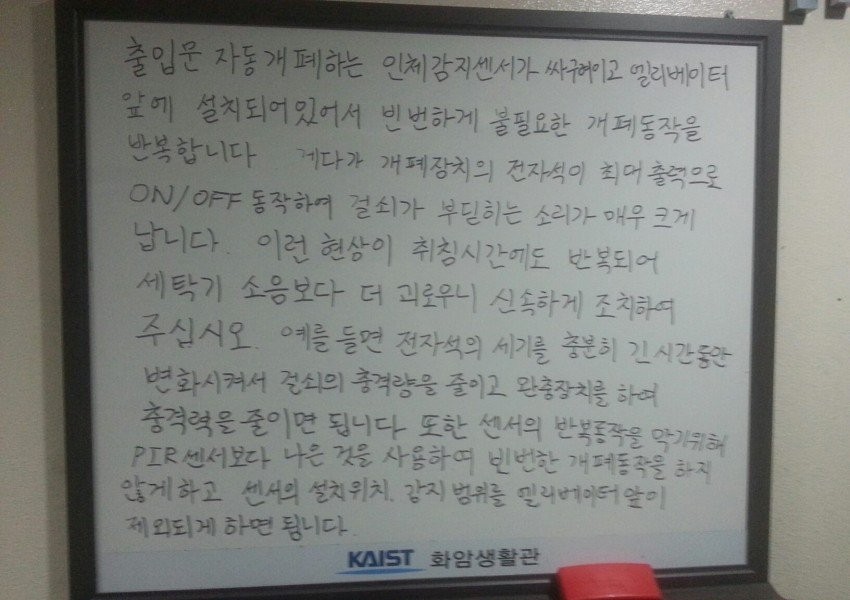 출입문 자동개폐하는 인체감지센서가 싸구려이고 엘리베이터
앞에 설치되어있어서 빈번하게 불필요한 개폐동작을
반복합니다 게다가 개폐장치의 전자석이 최대출력으로
ON/OFF 동작하여 걸쇠가 부딛히는 소리가 매우 크게
납니다. 이런 현상이 취침시간에도 반복되어
세탁기 소음보다 더 괴로우니 신속하게 조치하여
주십시오. 예를 들면 전자석의 세기를 충분히 긴시간동안
변화시켜서 걸쇠의 충격량을 줄이고 완충장치를 하여
충격력을 줄이면 됩니다 또한 센서의 반복동작을 막기위해
PIR센서보다 나은 것을 사용하여 빈번한 개폐동작을 하지
않게하고 센서의 설치위치, 감지범위를 엘리베이터 앞이
제외되게 하면 됩니다.
KAIST 화암생활관